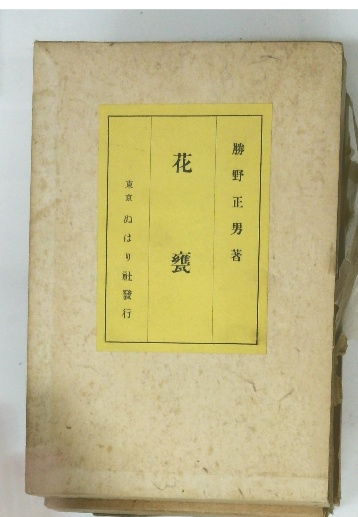 勝野正男著
花甕
東京 ぬはり社發行